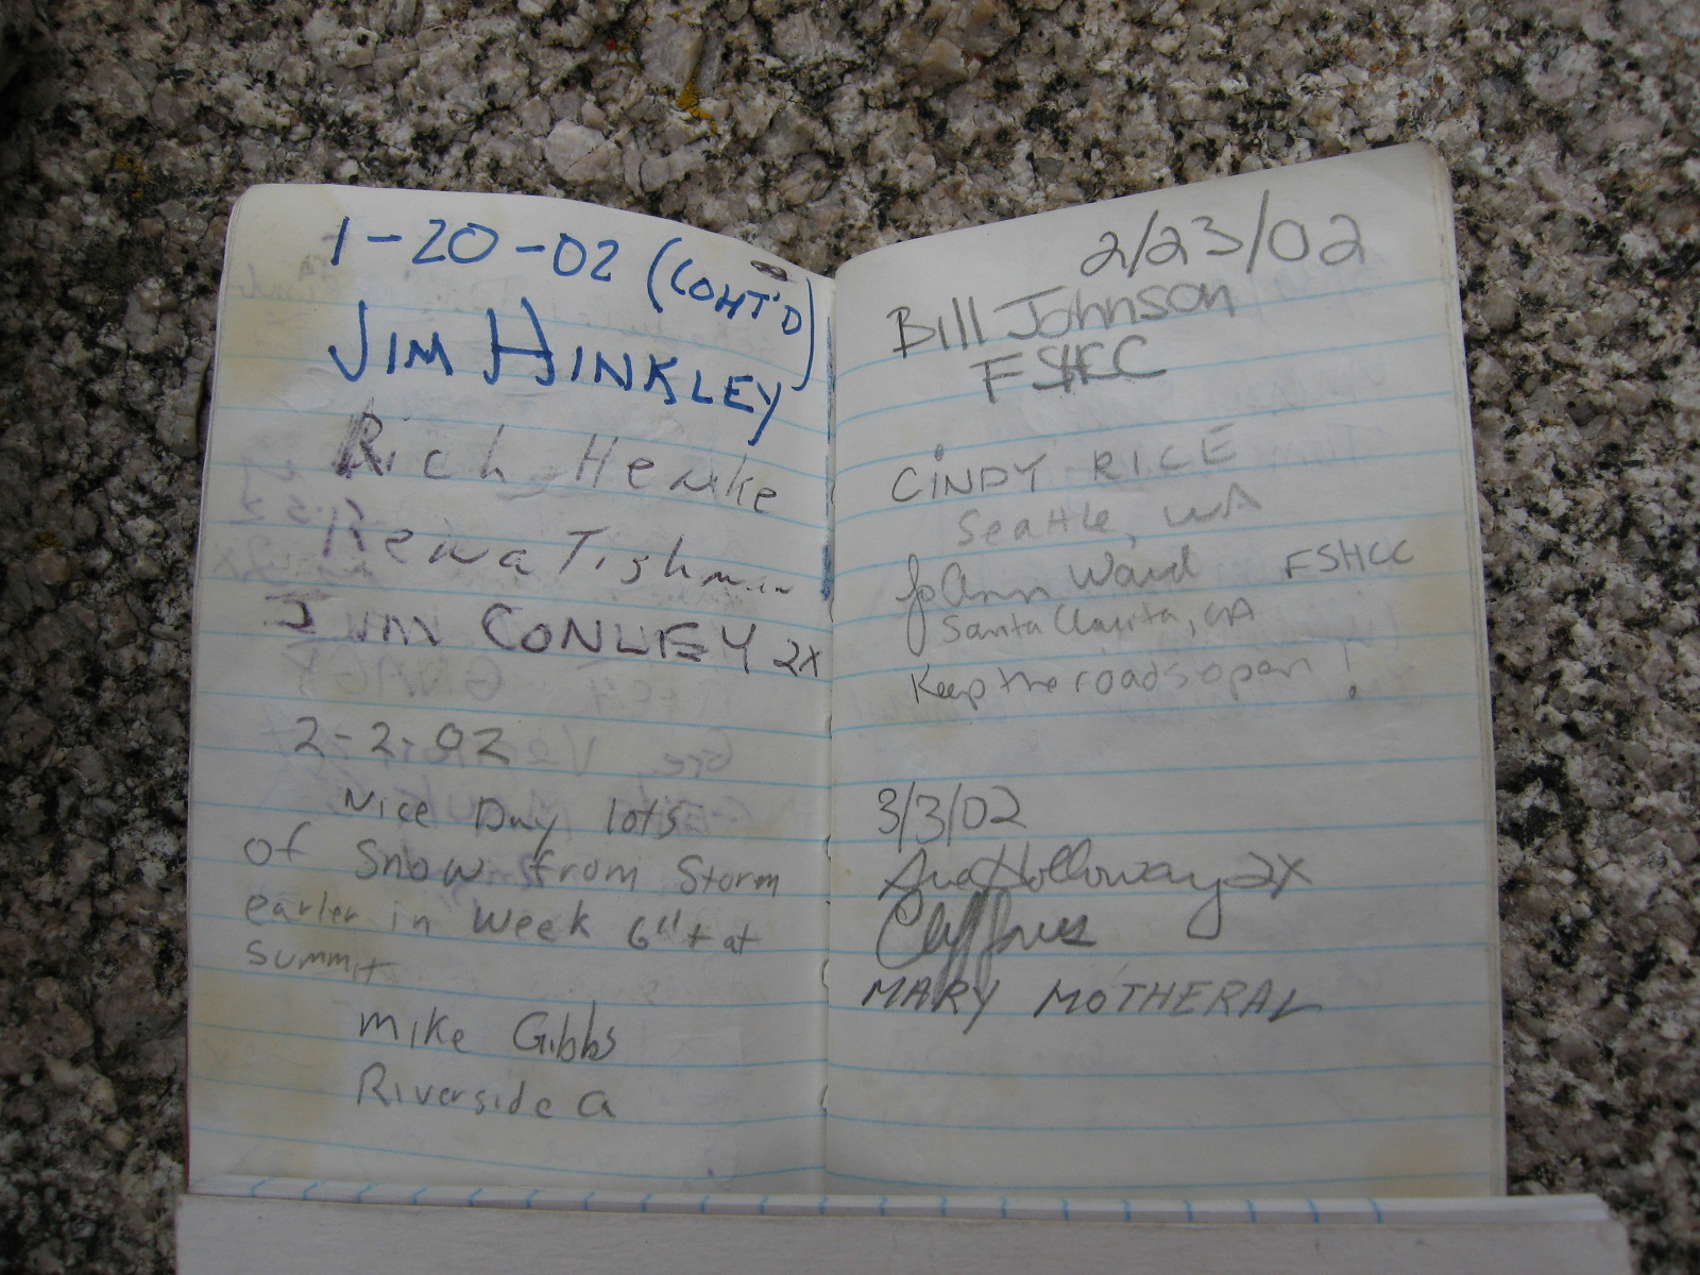 1-20-02 (CONT'D)
JIM HINKLEY
Rich Henke
Reiwa Tishman
JIM CONLEY 2X
2-2-02
Nice Day lots
of Snow from Storm
earler in week 6"+ at
summit
Mike Gibbs
Riverside Ca
2/23/02
Bill Johnson
FSHCC
CINDY RICE
Seattle, WA
JoAnn Ward FSHCC
Santa Clarita, CA
Keep the roads open!
3/3/02
Holloway 2X
MARY MOTHERAL